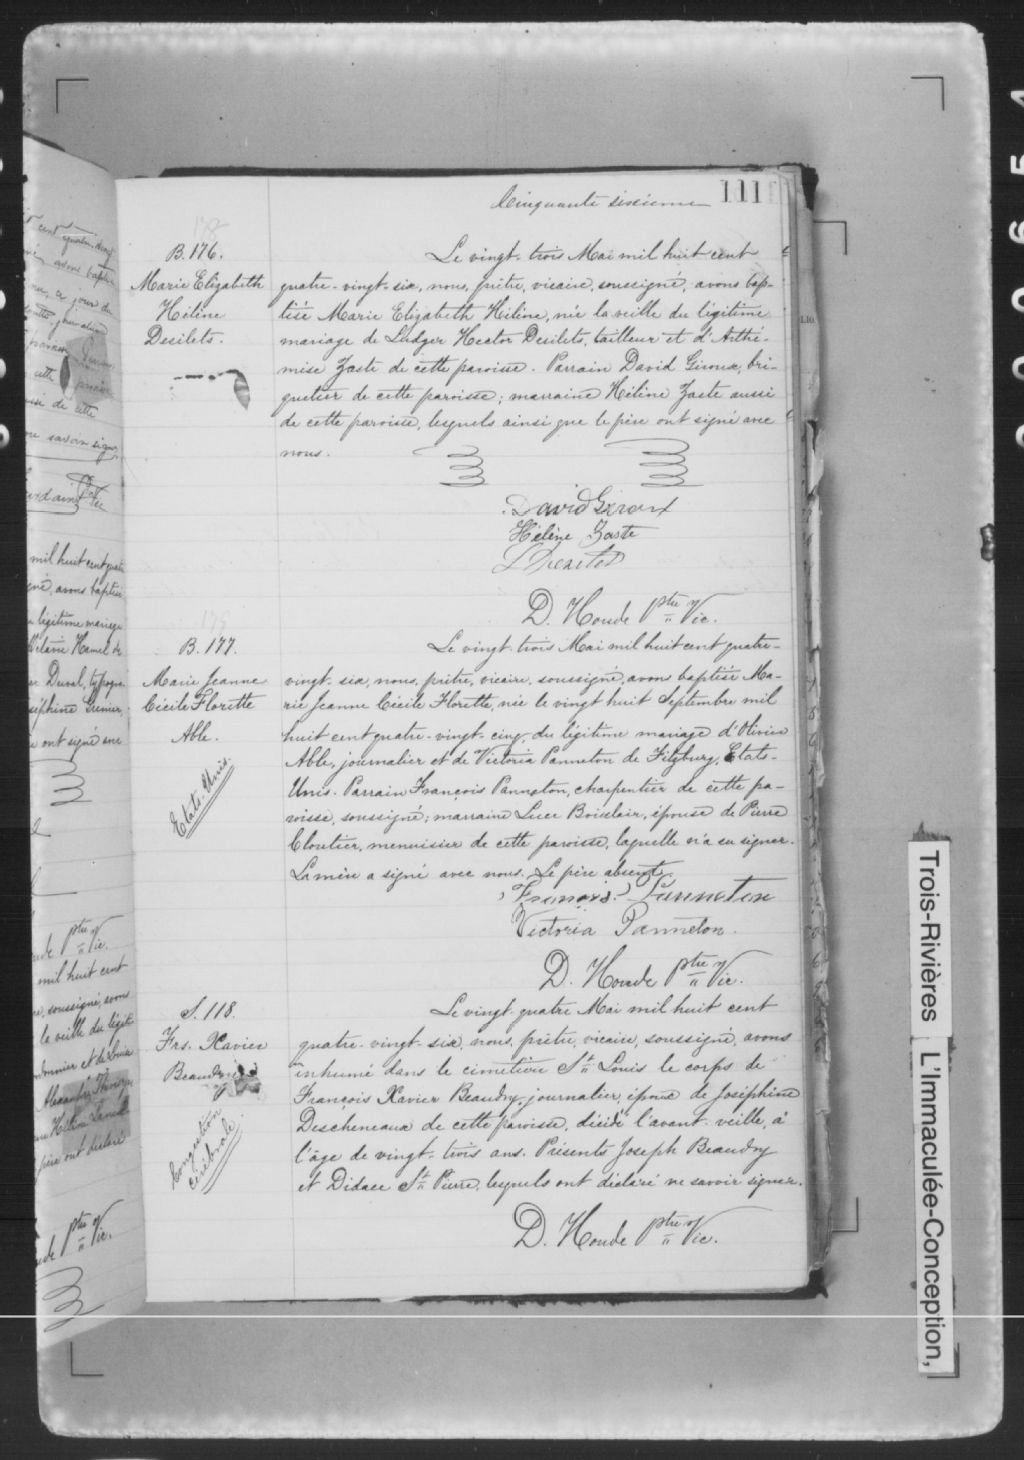 Cinquante sixième
111
B. 176.
Marie Elizabeth
Hélène
Desilets.
Le vingt-trois Mai mil huit cent
quatre-vingt-six, nous, prêtre, vicaire, soussigné, avons bap-
tisé Marie Elizabeth Hélène, née la veille du légitime
mariage de Ludger Hector Desilets, tailleur et d'Arthé-
mise Zaste de cette paroisse. Parrain David Giroux, bri-
quetier de cette paroisse; marraine Hélène Zaste aussi
de cette paroisse, lesquels ainsi que le père ont signé avec
nous.
David Giroux
Hélène Zaste
D. Houde Ptre Vic.
B. 177.
Marie Jeanne
Cécile Florette
Able.
Etats-Unis.
Le vingt-trois Mai mil huit cent quatre-
vingt-six, nous, prêtre, vicaire, soussigné, avons baptisé Ma-
rie Jeanne Cécile Florette, née le vingt huit Septembre mil
huit cent quatre-vingt-cinq, du légitime mariage d'Olivier
Able, journalier et de Victoria Panneton de Fitzburg, Etats-
Unis. Parrain François Panneton, charpentier de cette pa-
roisse, soussigné; marraine Luce Boisclair, épouse de Pierre
Cloutier, menuisier de cette paroisse, laquelle n'a su signer.
La mère a signé avec nous. Le père absent.
François Panneton
Victoria Panneton.
D. Houde Ptre Vic.
S. 118.
Frs. Xavier
Beaudry
Congestion
cérébrale.
Le vingt-quatre Mai mil huit cent
quatre-vingt-six, nous, prêtre, vicaire, soussigné, avons
inhumé dans le cimetière St Louis le corps de
François Xavier Beaudry, journalier, époux de Joséphine
Descheneaux de cette paroisse, décédé l'avant-veille, à
l'âge de vingt-trois ans. Présents Joseph Beaudry
et Didace St Pierre, lesquels ont déclaré ne savoir signer.
D. Houde Ptre Vic.
mil huit cent quatre
gné, avons baptisé
légitime mariage
Hamel de
Duval, typogra
ont signé avec
Ptre Vic.
mil huit cent
soussigné, avons
la veille du légit
père ont déclaré
Ptre Vic.
Trois-Rivières L'Immaculée-Conception,